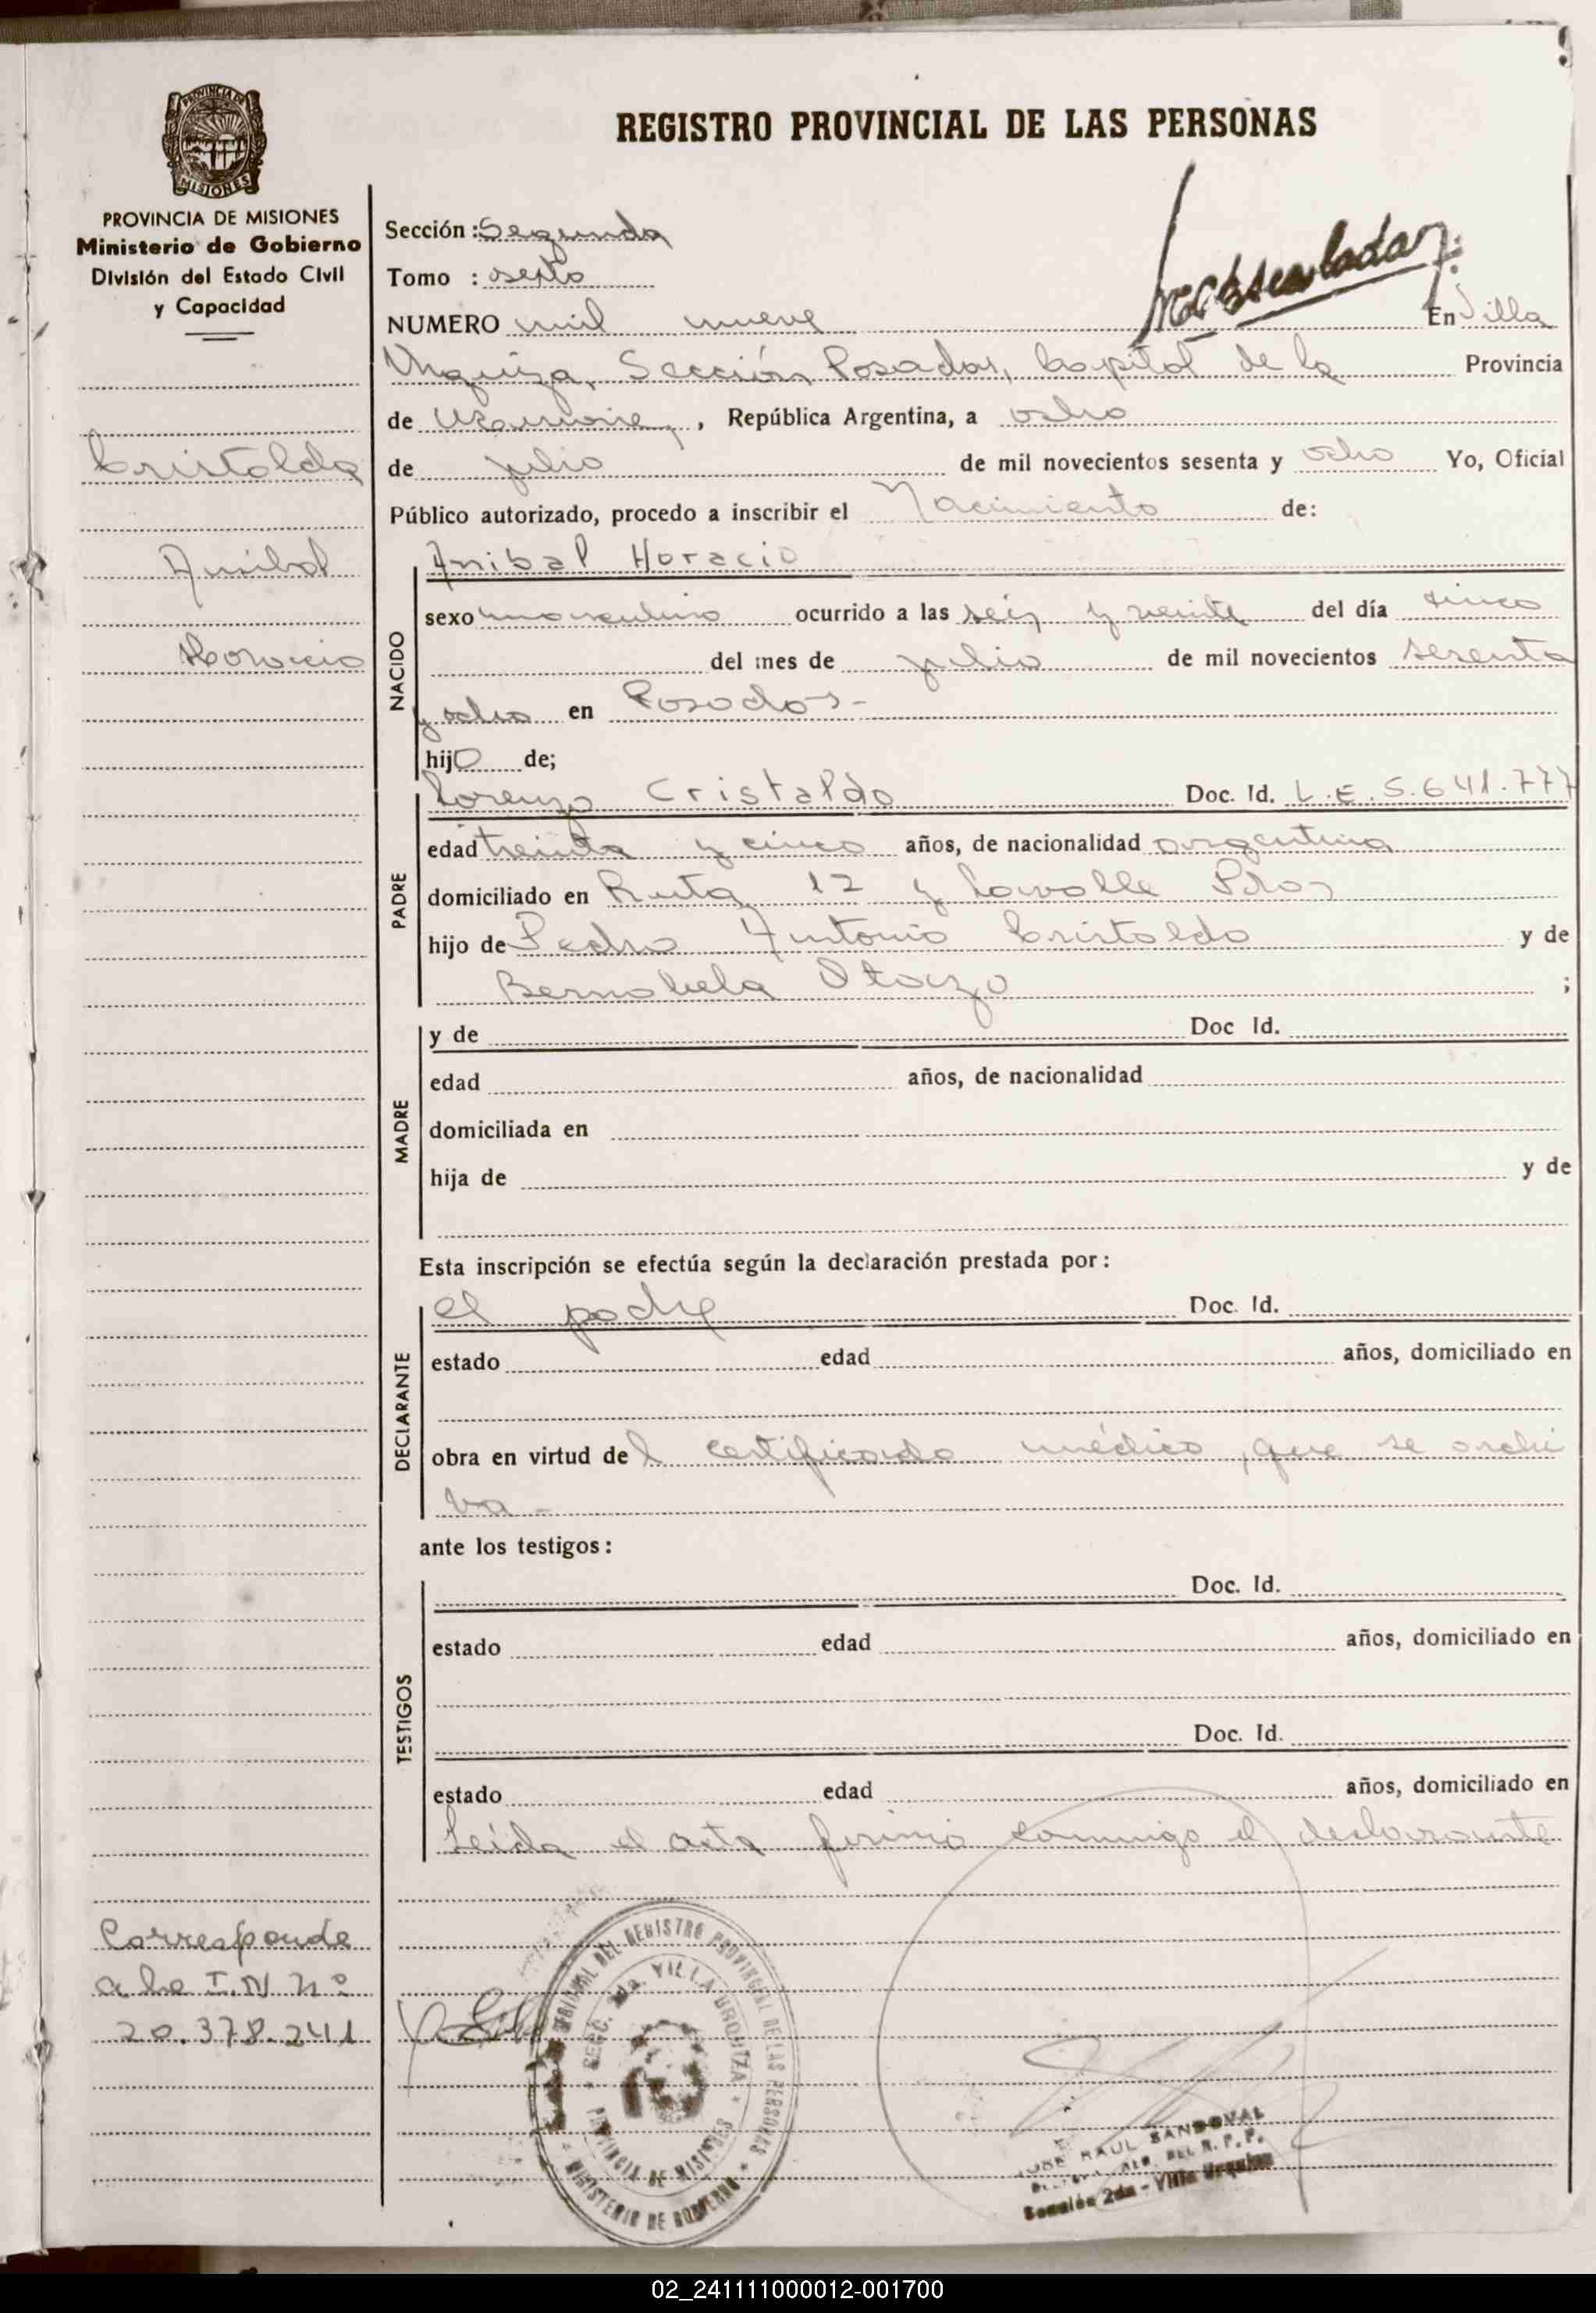 REGISTRO PROVINCIAL DE LAS PERSONAS
PROVINCIA DE MISIONES
PROVINCIA DE MISIONES
Ministerio de Gobierno
División del Estado Civil
y Capacidad
Cristaldo
Anibal
Horacio
Corresponde
a la I.N. nº
20.378.241
Sección: Segunda
Tomo : sexto
NUMERO mil nueve En Villa
Urquiza, Sección Posadas, Capital de la Provincia
de Misiones, República Argentina, a ocho
de julio de mil novecientos sesenta y ocho Yo, Oficial
Público autorizado, procedo a inscribir el Nacimiento de:
NACIDO
Anibal Horacio
sexo masculino ocurrido a las seis y veinte del día cinco
del mes de julio de mil novecientos sesenta
y ocho en Posadas-
hijo de;
PADRE
Lorenzo Cristaldo Doc. Id. L.E. 5.641.777
edad treinta y cinco años, de nacionalidad argentina
domiciliado en Ruta 12 y Lavalle Pdas
hijo de Pedro Antonio Cristaldo y de
Bernabela Otazo ;
MADRE
y de Doc Id.
edad años, de nacionalidad
domiciliada en
hija de y de
Esta inscripción se efectúa según la declaración prestada por:
DECLARANTE
el padre Doc. Id.
estado edad años, domiciliado en
obra en virtud del certificado médico, que se archi
va-
ante los testigos:
TESTIGOS
Doc. Id.
estado edad años, domiciliado en
Doc. Id.
estado edad años, domiciliado en
Leída el acta firmó conmigo el declarante
DEL REGISTRO PROVINCIAL DE LAS PERSONAS
SECC. 2da. VILLA URQUIZA
PROVINCIA DE MISIONES
MINISTERIO DE GOBIERNO
JOSE RAUL SANDOVAL
DEL R. P. P.
Sección 2da - Villa Urquiza
02_241111000012-001700